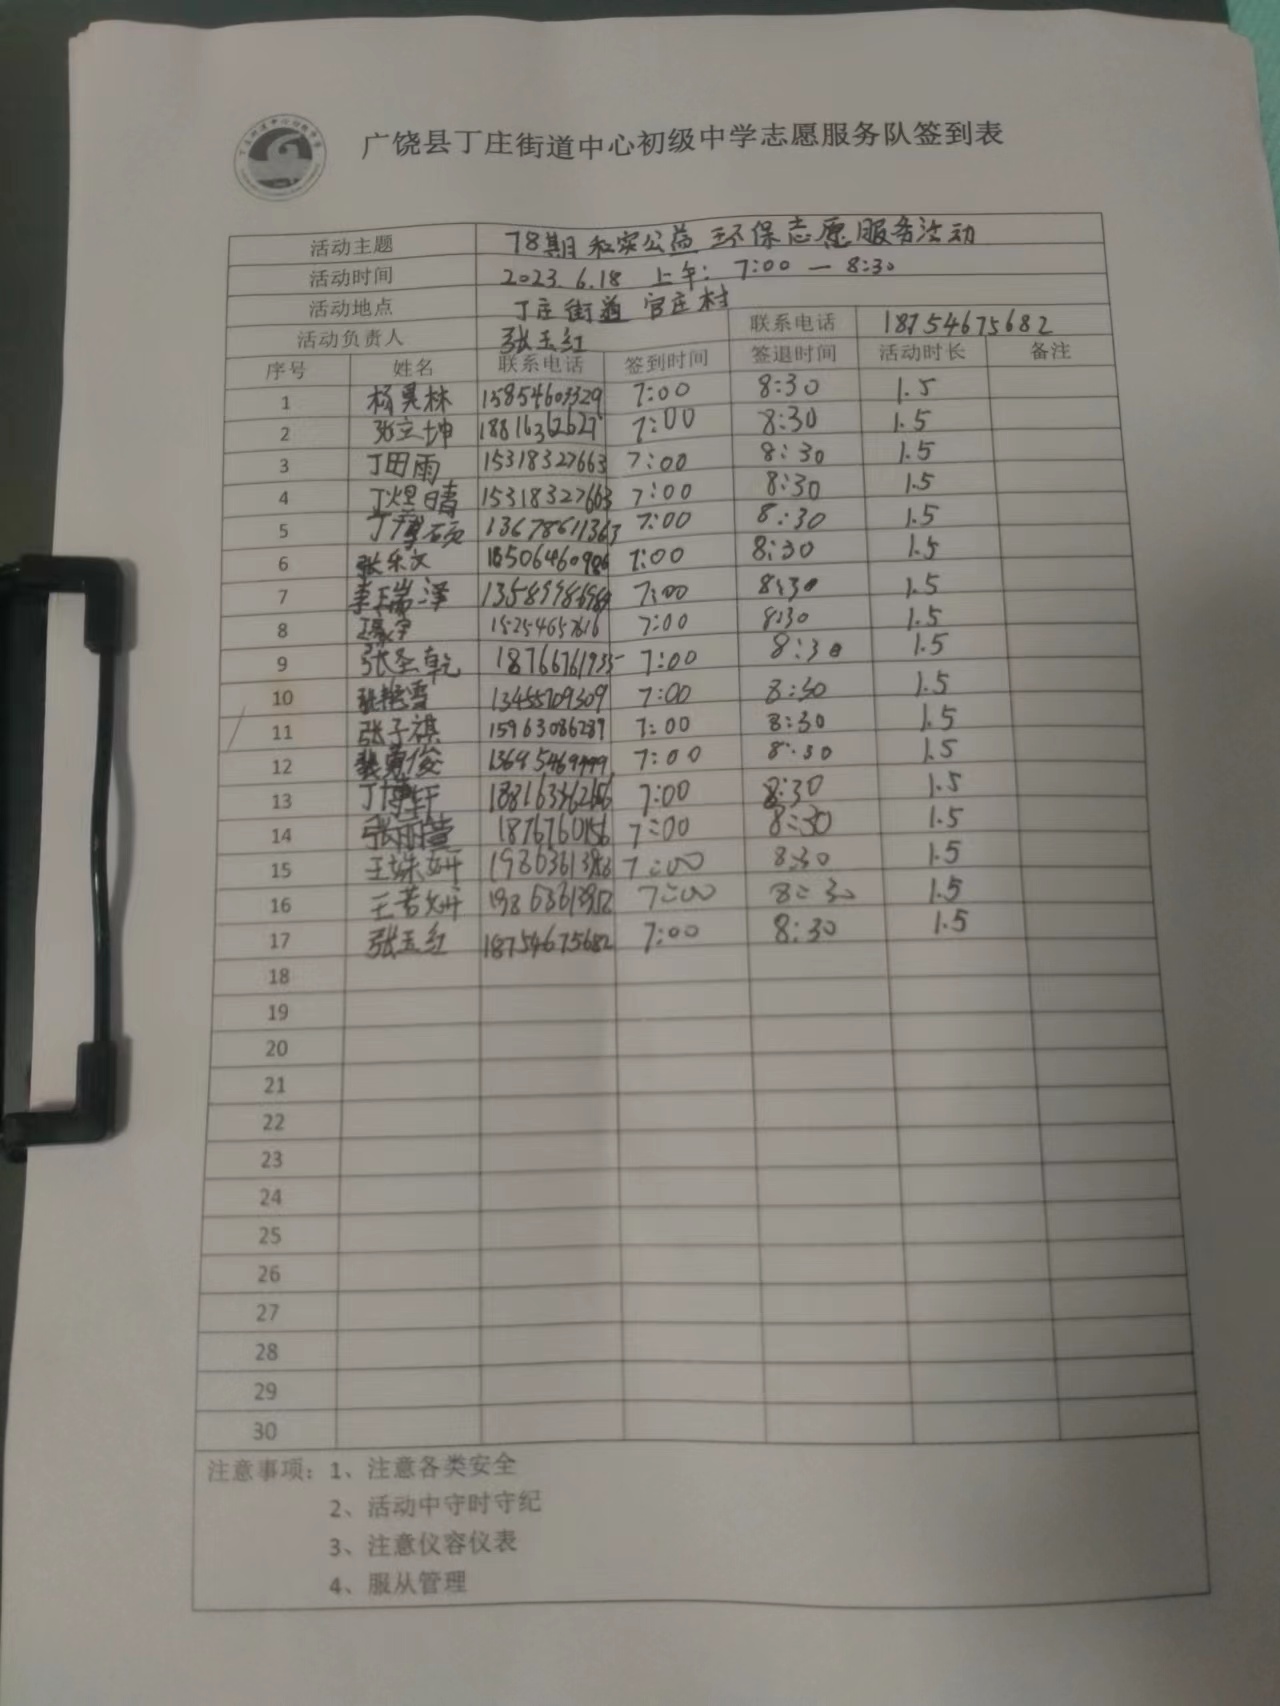 广饶县丁庄街道中心初级中学志愿服务队签到表
活动主题 78期 和家公益 环保志愿服务活动
活动时间 2023.6.18 上午: 7:00 — 8:30
活动地点 丁庄街道 官庄村
活动负责人 张玉红 联系电话 18754675682
序号 姓名 联系电话 签到时间 签退时间 活动时长 备注
1 杨昊林 15854603329 7:00 8:30 1.5
2 张立坤 7:00 8:30 1.5
3 丁田雨 15318327663 7:00 8:30 1.5
4 丁煜晴 15318327663 7:00 8:30 1.5
5 丁博硕 13678611363 7:00 8:30 1.5
6 张乐文 7:00 8:30 1.5
7 李瑞泽 7:00 8:30 1.5
8 7:00 8:30 1.5
9 张圣乾 18766761935 7:00 8:30 1.5
10 张艳雪 13455709309 7:00 8:30 1.5
11 张子祺 15963086289 7:00 8:30 1.5
12 7:00 8:30 1.5
13 丁博轩 7:00 8:30 1.5
14 张丽萱 7:00 8:30 1.5
15 王姝妍 7:00 8:30 1.5
16 王若妍 7:00 8:30 1.5
17 张玉红 18754675682 7:00 8:30 1.5
18
19
20
21
22
23
24
25
26
27
28
29
30
注意事项：1、注意各类安全
2、活动中守时守纪
3、注意仪容仪表
4、服从管理